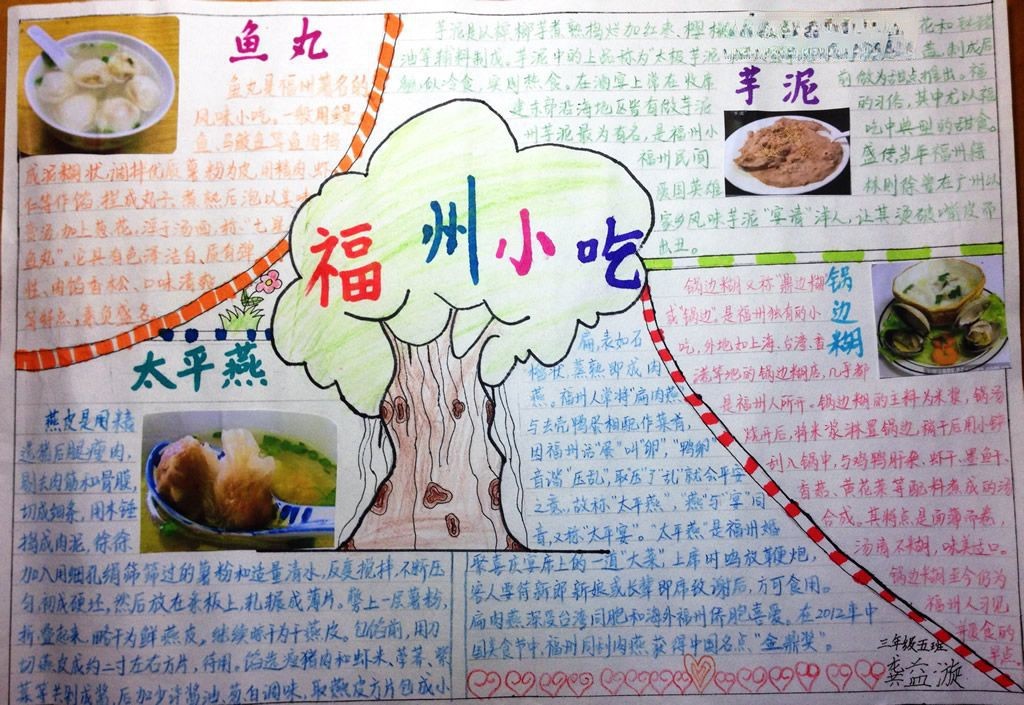 福州小吃
鱼丸
鱼丸是福州著名的
风味小吃。一般用鳗
鱼、马鲛鱼等鱼肉捣
成泥糊状,调拌优质薯粉为皮,用精肉、虾
仁等作馅,搓成丸子,煮熟后泡以美味
高汤,加上葱花,浮于汤面,称"七星
鱼丸"。它具有色泽洁白、质有弹
性、肉馅香松、口味清爽
等特点,素负盛名。
芋泥
芋泥是以槟榔芋煮熟捣烂加红枣、樱桃
花和
油等辅料制成。芋泥中的上品称为"太极芋泥
制成后
貌似冷食,实则热食。在酒宴上常在收席
前做为甜点推出。福
建东部沿海地区皆有做芋泥
的习俗,其中尤以福
州芋泥最为有名,是福州小
吃中典型的甜食。
福州民间
盛传当年福州籍
英国英雄
林则徐曾在广州以
家乡风味芋泥"宴请"洋人,让其烫破嘴皮而
出丑。
锅边糊
锅边糊又称"鼎边糊
或"锅边"。是福州独有的小
吃,外地如上海、台湾、香
港等地的锅边糊店,几乎都
是福州人所开。锅边糊的主料为米浆,锅汤
烧开后,将米浆淋置锅边,稍干后用小铲
刮入锅中,与鸡鸭肝杂、虾干、墨鱼干、
香菇、黄花菜等配料煮成的汤
合成。其特点是面薄而卷,
汤离不糊,味美适口。
锅边糊至今仍为
福州人习见
的
早点
太平燕
燕皮是用精
选猪后腿瘦肉,
剔去肉筋和骨膜,
切成细条,用木锤
捣成肉泥,徐徐
加入用细孔绢筛筛过的薯粉和适量清水,反复搅拌,不断压
匀,制成硬坯,然后放在条板上,轧辗成薄片。撒上一层薯粉,
折叠起来,晾干为鲜燕皮。继续晾干为干燕皮。包馅前,用刀
切燕皮成约二寸左右方片,待用。馅选瘦猪肉和虾米、荸荠、紫
菜等共剁成酱,后加少许酱油、葱白调味,取燕皮方片包成小
扁,表如石
榴状,蒸熟即成肉
燕。福州人常将"扁肉燕"
与去壳鸭蛋相配作菜肴,
因福州话蛋"叫"卵","鸭卵"
音谐"压乱",取压了"乱"就会平安
之意,故称"太平燕","燕"与"宴"同
音,又称"太平宴"。"太平燕"是福州婚
聚喜庆宴席上的一道"大菜",上席时鸣放鞭炮,
客人要待新郎新娘或长辈即席致谢后,方可食用。
扁肉燕深受台湾同胞和海外福州侨胞喜爱。在2012年中
国美食节中,福州同利肉燕获得中国名点"金鼎奖"。
三年级五班
龚益漩